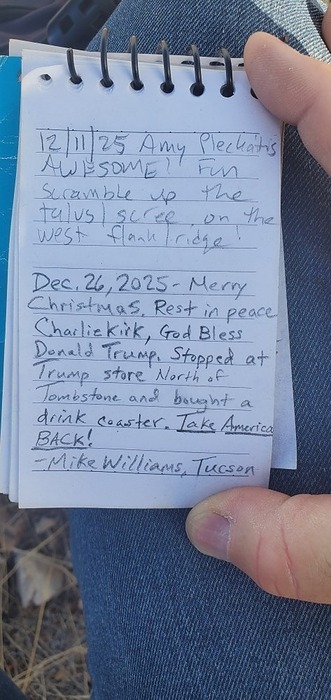 12/11/25 Amy Plechatis
AWESOME! Fun
scramble up the
talus/scree on the
west flank/ridge!
Dec. 26, 2025 - Merry
Christmas. Rest in peace
Charlie Kirk, God Bless
Donald Trump. Stopped at
Trump store North of
Tombstone and bought a
drink coaster. Take America
BACK!
-Mike Williams, Tucson